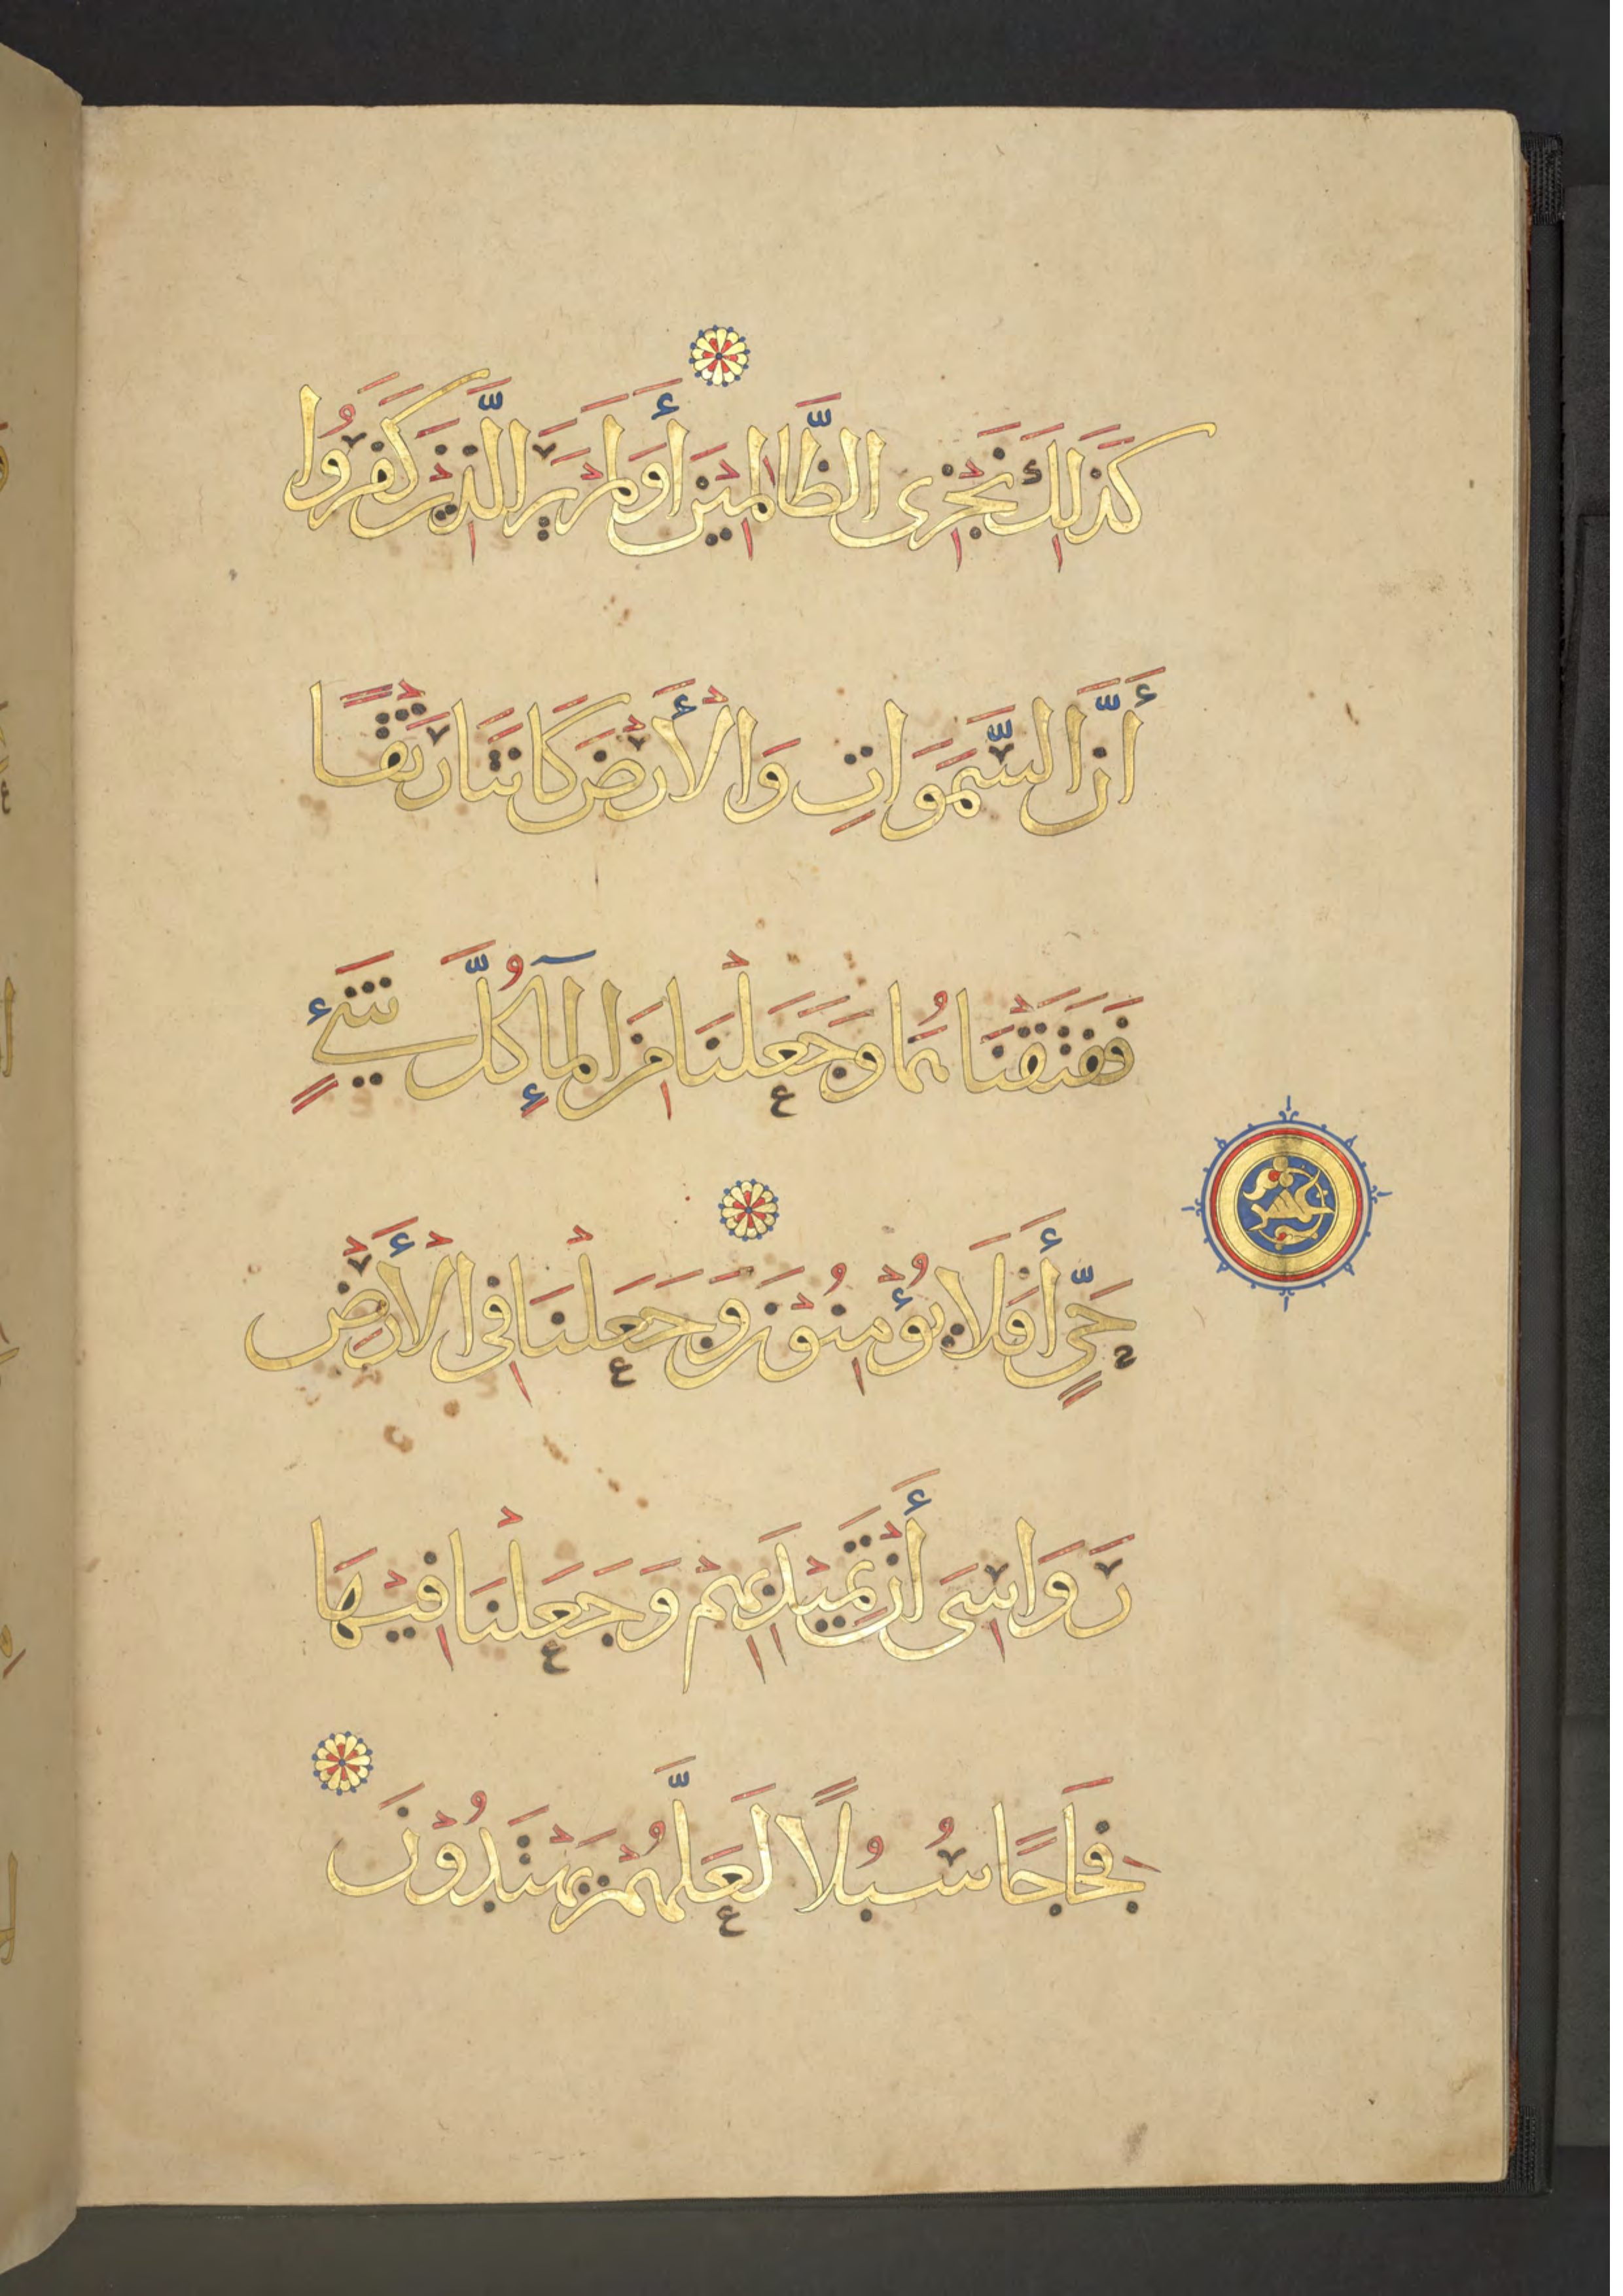 كَذَالِكَ نَجْزِى الظَّالِمِيْنَ أَوَلَمْ يَرَ الَّذِيْنَ كَفَرُوا
أَنَّ السَّمَوَاتِ وَالْأَرْضَ كَانَتَا رَتْقًا
فَفَتَقْنَاهُمَا وَجَعَلْنَا مِنَ الْمَآءِ كُلَّ شَىْءٍ
حَىٍّ أَفَلَا يُؤْمِنُوْنَ وَجَعَلْنَا فِى الْأَرْضِ
عشر
رَوَاسِىَ أَنْ تَمِيْدَ بِهِمْ وَجَعَلْنَا فِيْهَا
فِجَاجًا سُبُلًا لَعَلَّهُمْ يَهْتَدُوْنَ